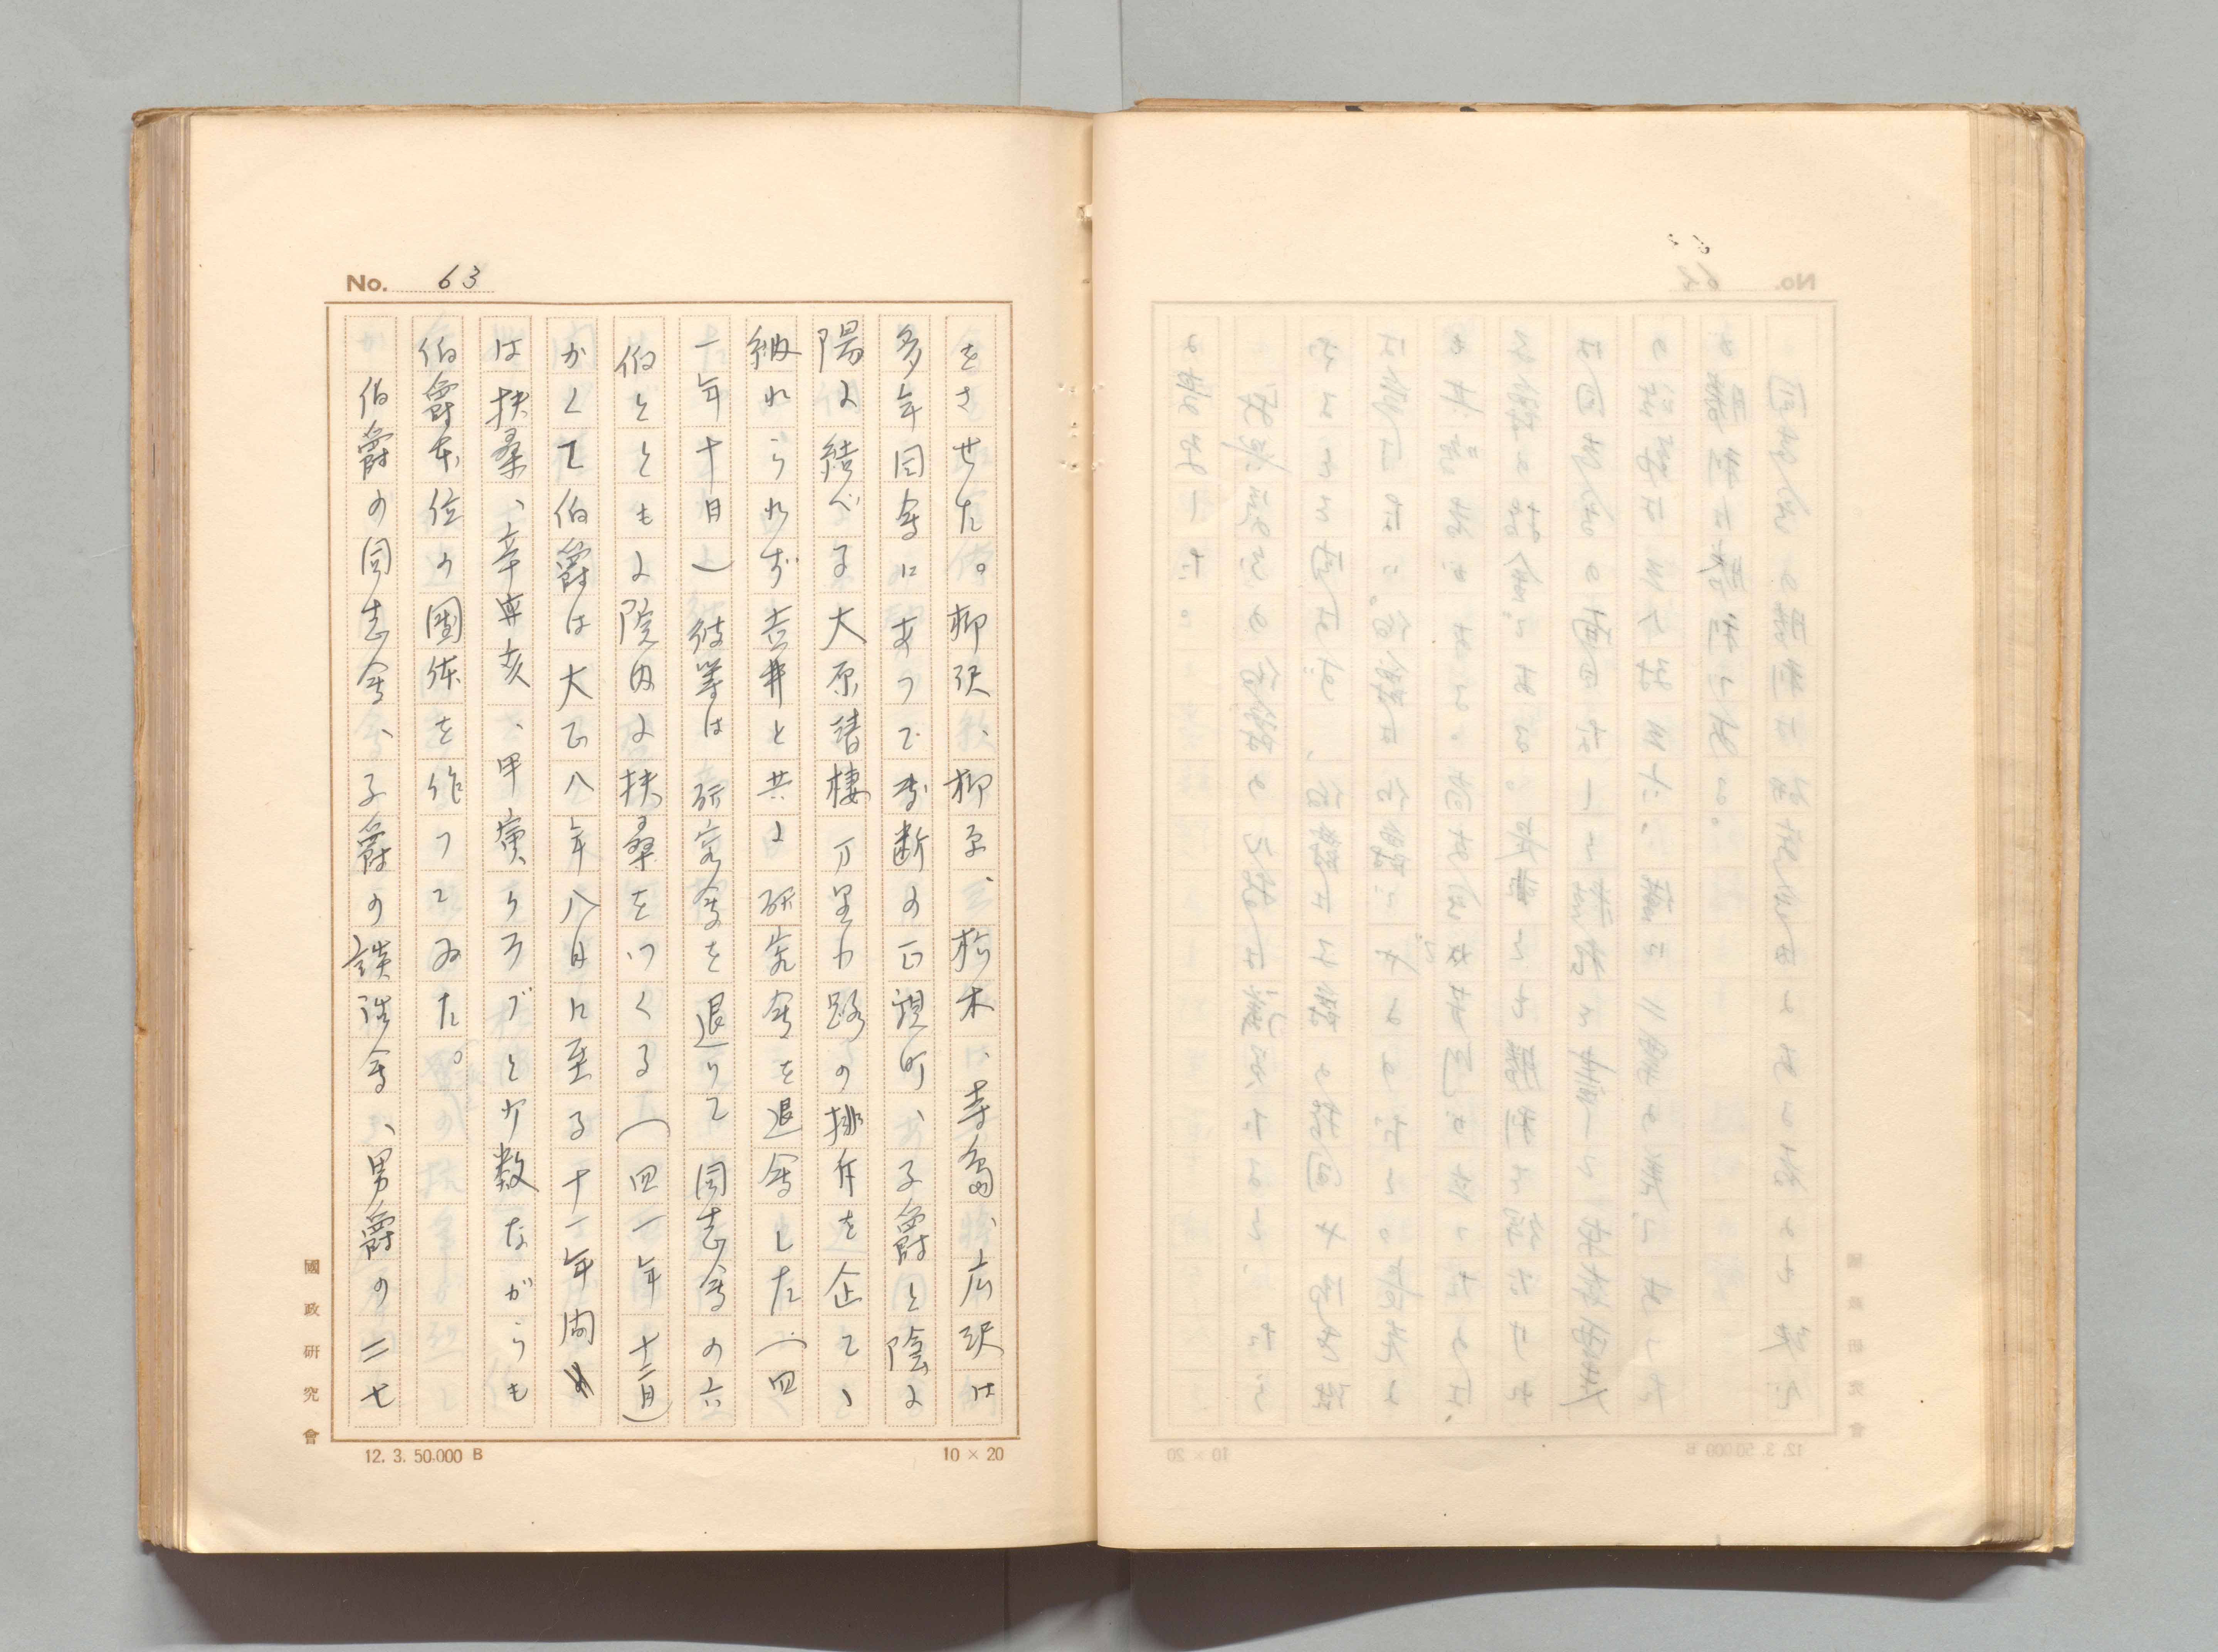 No. 63
をさせた。柳沢、柳原、栃木、寺島、広沢は
多年同会にあつて専断の正親町、子爵と陰に
陽に結べる大原清棲万里小路の排斥を企て、
納れられず吉井と共に研究会を退会した(四
一年十月)彼等は研究会を退りて同志会の六
伯とともに院内に扶桑をつくる(四一年十二月)
かくて伯爵は大正八年八月に至る十一年間
は扶桑、辛亥、甲寅クラブと少数ながらも
伯爵本位の団体を作つてゐた。
伯爵の同志会、子爵の談話会、男爵の二七
國政研究會
12. 3. 50,000 B
10 × 20